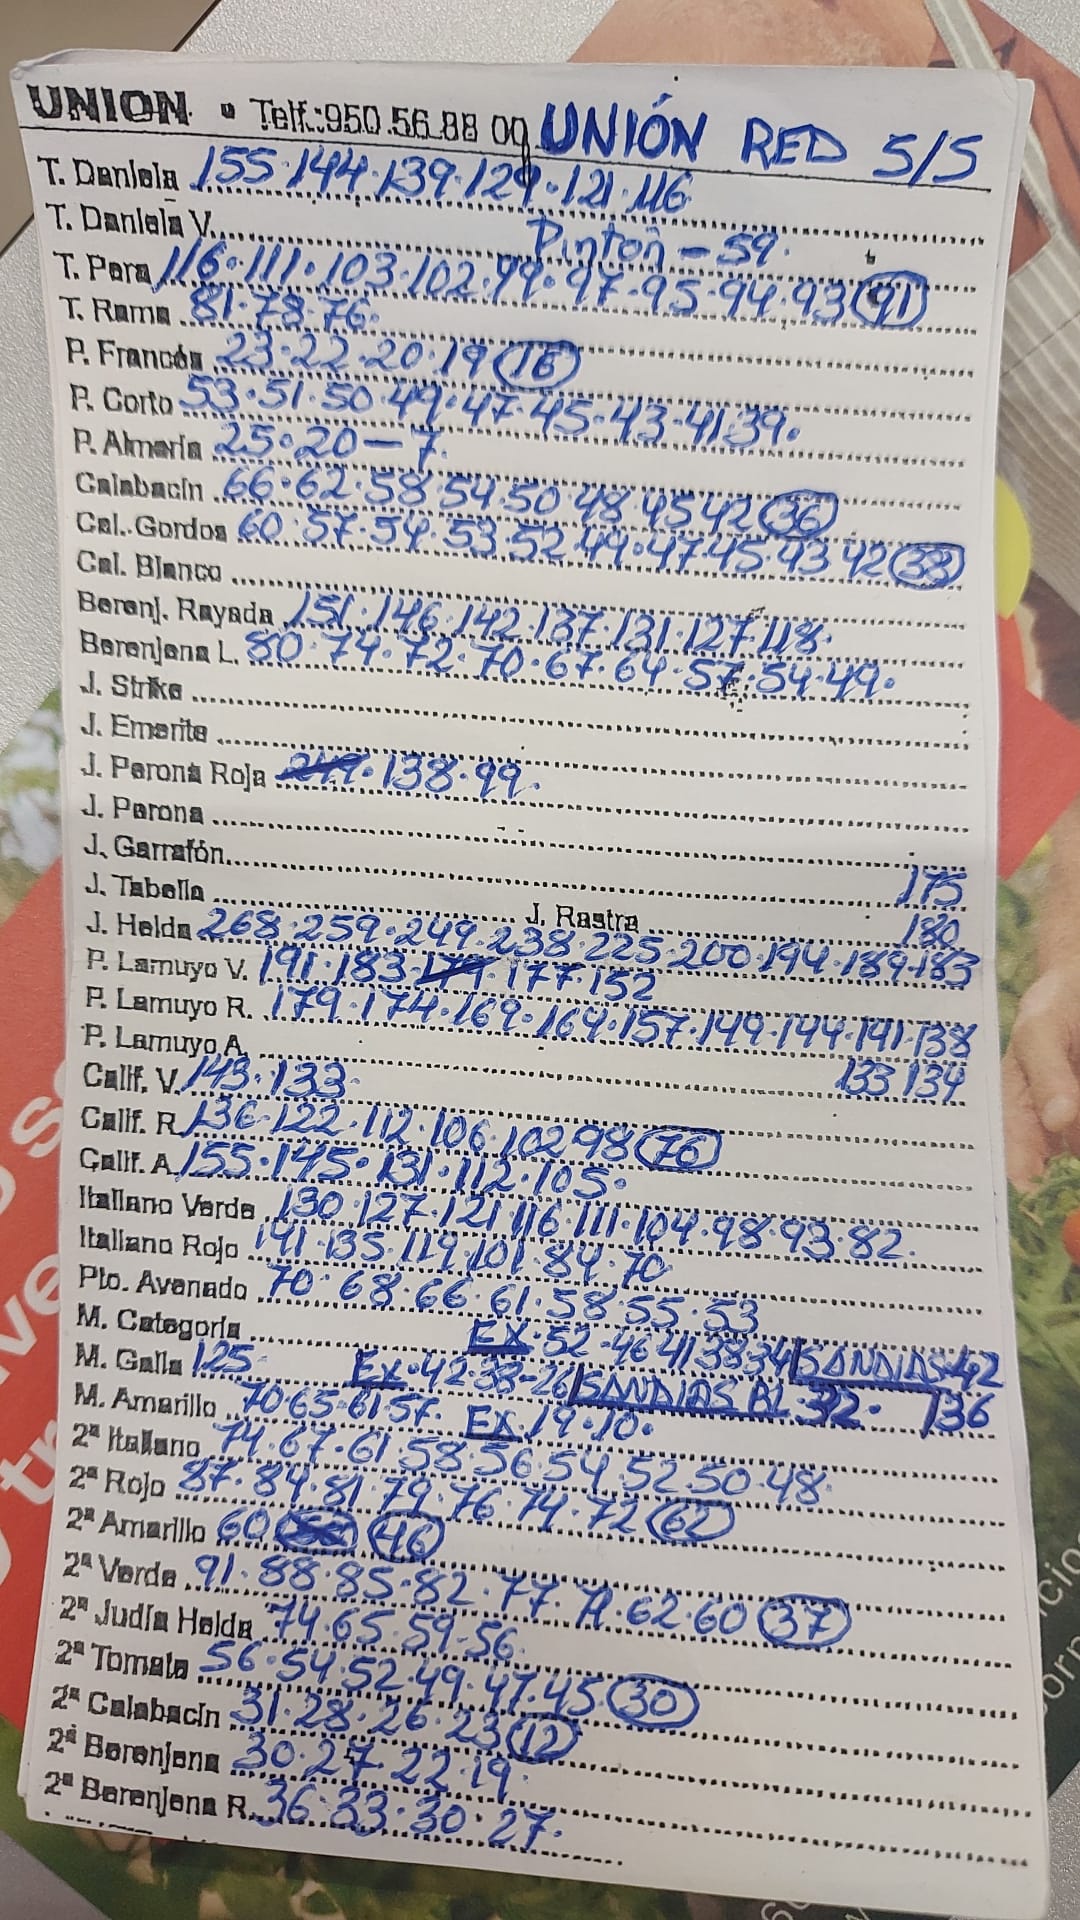 UNION · Telf.:950.56.88 00 UNIÓN RED 5/5
T. Daniela 155·144·139·129·121·116
T. Daniela V. Pinton - 59.
T. Pera 116·111·103·102·99·97·95·94·93 91
T. Rama 81·78·76.
P. Francés 23·22·20·19 16
P. Corto 53·51·50·49·47·45·43·41·39.
P. Almería 25·20-7.
Calabacín 66·62·58·54·50·48·45 42 36
Cal. Gordos 60·57·54·53·52·49·47·45·43 42 38
Cal. Blanco
Berenj. Rayada 151·146·142·137·131·127·118.
Berenjena L. 80·74·72·70·67·64·57·54·49.
J. Strike
J. Emerite
J. Perona Roja 249·138·99.
J. Perona
J. Garrafón 175
J. Tabella J. Rastra 180
J. Helda 268·259·249·238·225·200·194·189·183
P. Lamuyo V. 191·183·179·177·152
P. Lamuyo R. 179·174·169·164·157·149·144·141·138
P. Lamuyo A. 133 134
Calif. V. 143·133.
Calif. R. 136·122·112·106·102 98 76
Calif. A. 155·145·131·112·105.
Italiano Verde 130·127·121·116·111·104·98·93·82.
Italiano Rojo 141·135·119·101·84·70
Pto. Avenado 70·68·66·61·58·55·53
M. Categoría EX·52·46 41 38 34 SANDIAS·42
M. Galia 125. Ex·42·33-26 SANDIAS BL 32· 136
M. Amarillo 70·65·61·57. EX·19·10.
2ª Italiano 74·67·61·58·56·54·52·50·48.
2ª Rojo 87·84·81·79·76·74·72 62
2ª Amarillo 60 46
2ª Verde 91·88·85·82·77·71·62·60 37
2ª Judía Helda 74·65·59·56.
2ª Tomate 56·54·52·49·47·45 30
2ª Calabacín 31·28·26·23 12
2ª Berenjena 30·27·22·19.
2ª Berenjena R. 36·33·30·27.